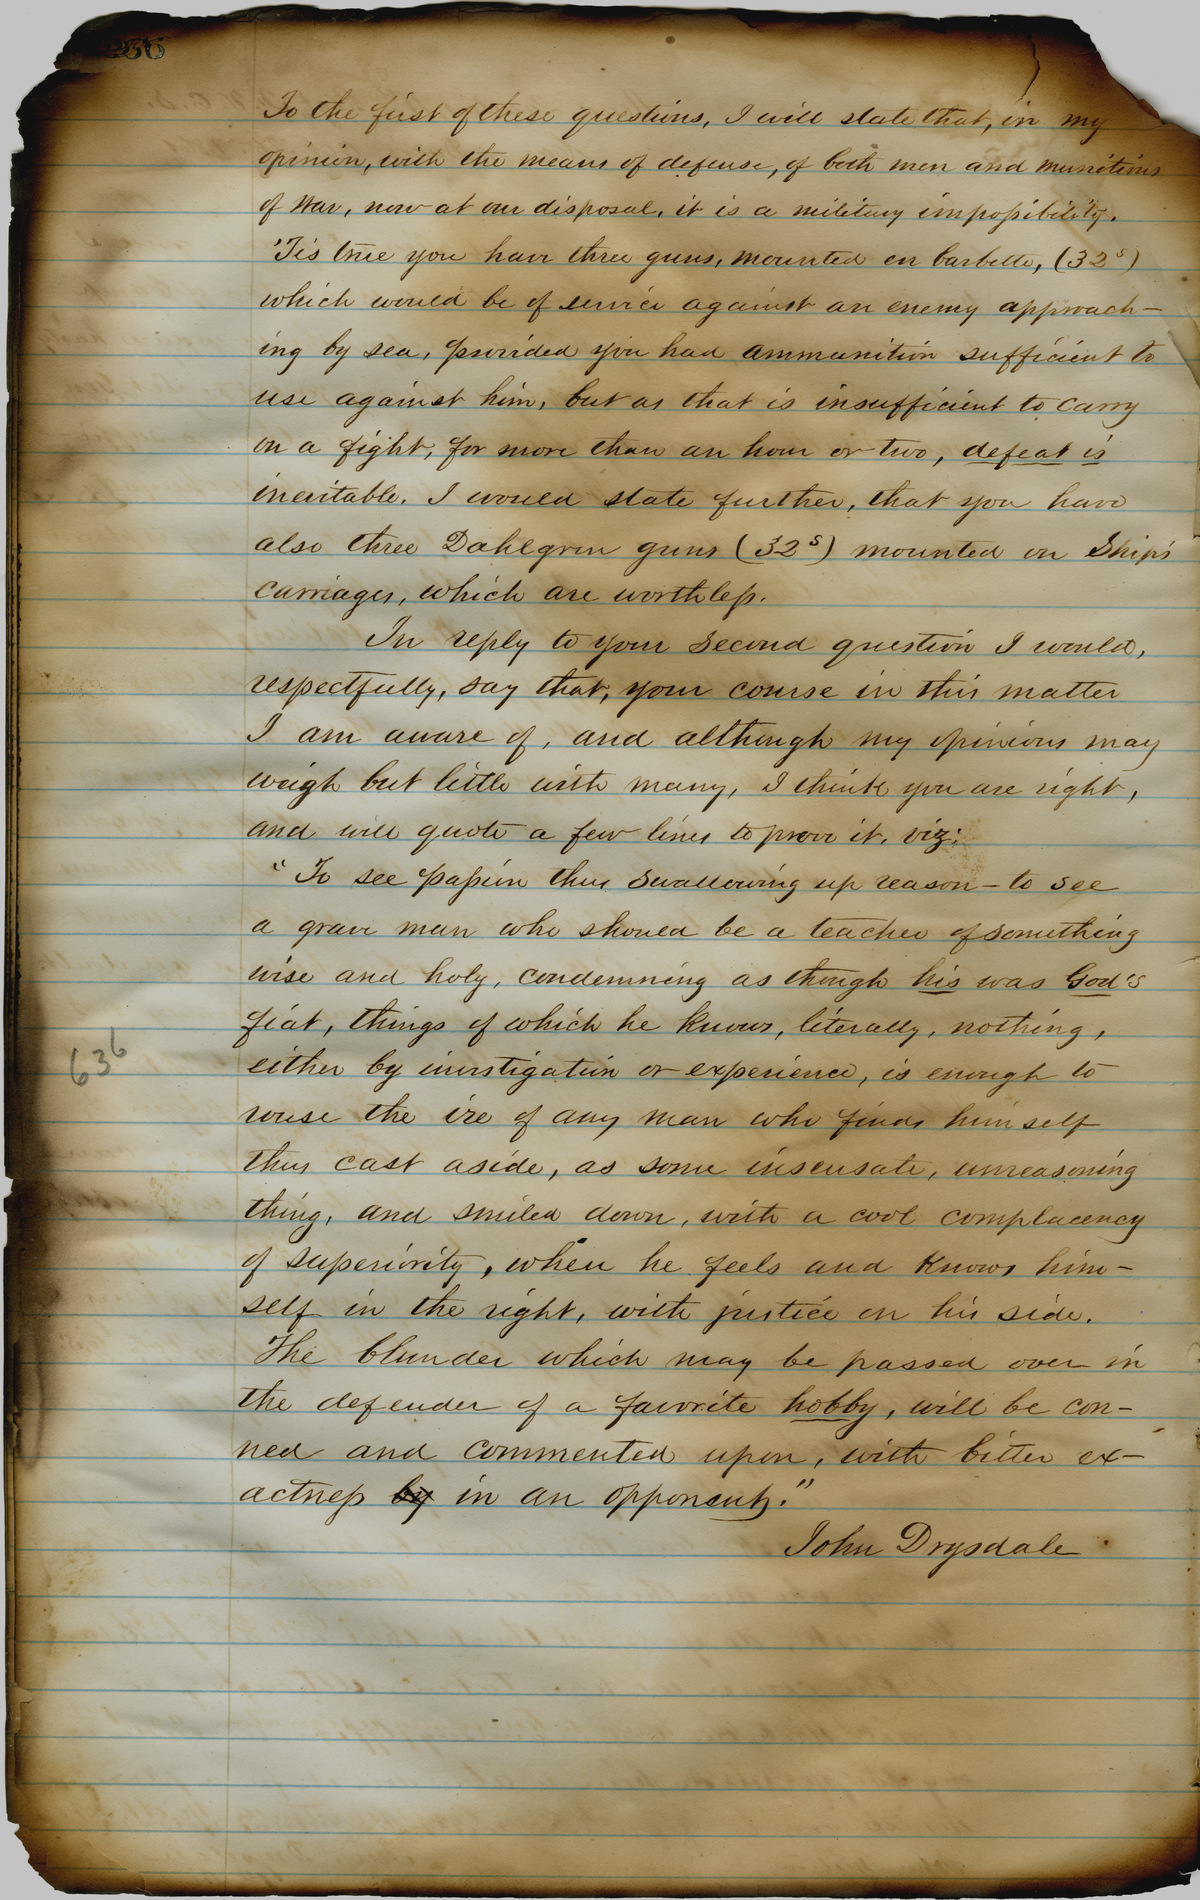 236
To the first of these questions, I will state that, in my
opinion, with the means of defense, of both men and munitions
of War, now at our disposal, it is a military impossibility.
'Tis true you have three guns, mounted en barbette, (32s)
which would be of service against an enemy approach-
ing by sea, provided you had ammunition sufficient to
use against him, but as that is insufficient to carry
on a fight, for more than an hour or two, defeat is
inevitable. I would state further, that you have
also three Dahlgren guns (32s) mounted on Ship's
carriages, which are worthless.
In reply to your second question I would,
respectfully, say that, your course in this matter
I am aware of, and although my opinions may
weigh but little with many, I think you are right,
and will quote a few lines to prove it, viz:
"To see passion thus swallowing up reason - to see
a grave man who should be a teacher of something
wise and holy, condemning as though his was God's
fiat, things of which he knows, literally, nothing,
either by investigation or experience, is enough to
rouse the ire of any man who finds himself
thus cast aside, as some insensate, unreasoning
thing, and smiled down, with a cool complacency
of superiority, when he feels and knows him-
self in the right, with justice on his side.
The blunder which may be passed over in
the defender of a favorite hobby, will be con-
ned and commented upon, with bitter ex-
actness by in an opponent."
John Drysdale
636